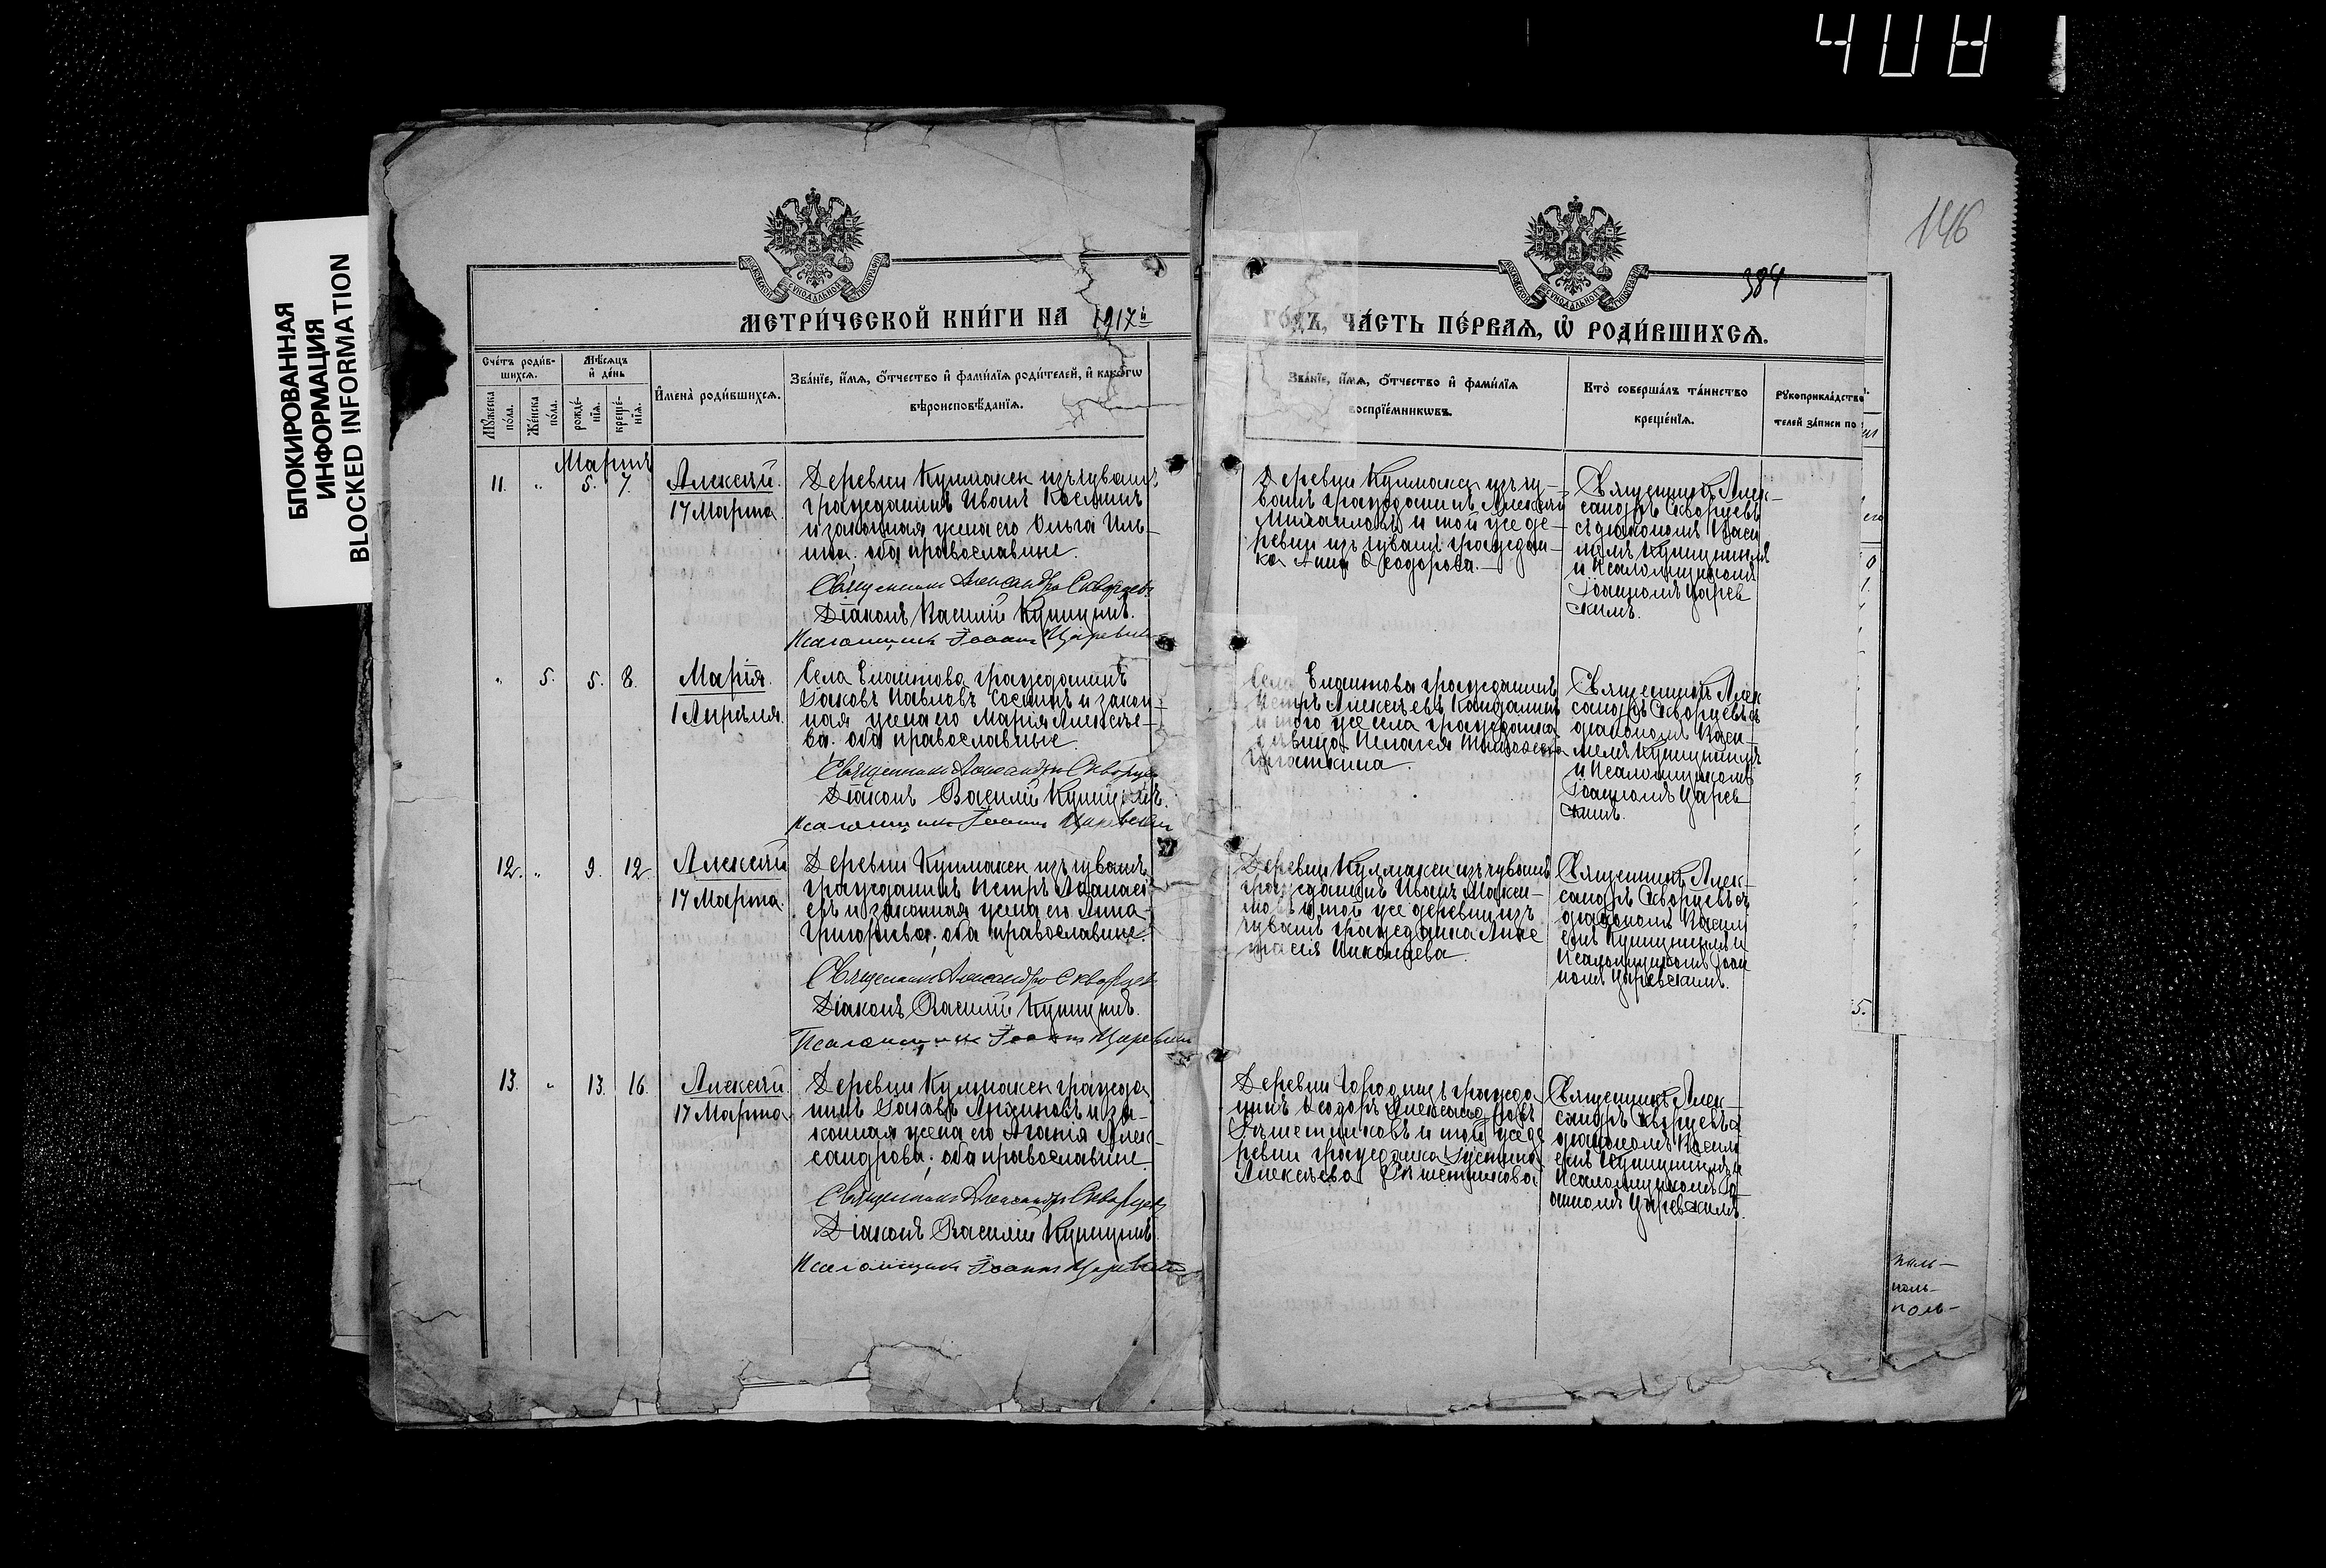 408
БЛОКИРОВАННАЯ
ИНФОРМАЦИЯ
BLOCKED INFORMATION
146
384
МОСКОВСКОЙ СѴНОДАЛЬНОЙ ТИПОГРАФІИ
МОСКОВСКОЙ СѴНОДАЛЬНОЙ ТИПОГРАФІИ
МЕТРИ́ЧЕСКОЙ КНИ́ГИ НА 1917й
ГО́ДЪ, ЧА́СТЬ ПЕ́РВАЯ, Ѡ҆ РОДИ́ВШИХСЯ.
Сче́тъ роди́в-
шихся.
Мꙋ́жеска
по́ла.
Же́нска
по́ла.
Мѣ́сяцъ
и҆ де́нь
рожде́-
нїя.
креще́-
нїя.
И҆мена̀ роди́вшихся.
Зва́нїе, и҆́мя, ѻ҆́тчество и҆ фами́лїя роди́телей, и҆ како́гѡ
вѣроисповѣ́данїя.
Зва́нїе, и҆́мя, ѻ҆́тчество и҆ фами́лїя
воспрїе́мникѡвъ.
Кто̀ соверша́лъ та́инство
креще́нїя.
Рꙋкоприкла́дство
телей за́писи по
Мартъ
11. „ 5. 7.
Алексій.
17 Марта.
Деревни Кулмакси изъ чувашъ
гражданинъ Иванъ Косминъ
и законная жена его Ольга Иль-
ина; оба православные.
Священникъ Александръ Скворцевъ
Діаконъ Василій Купицынъ.
Псаломщикъ Іоаннъ Царевскій
Деревни Кулмакси изъ чу-
вашъ гражданинъ Алексѣй
Михайловъ и той же де-
ревни изъ чувашъ граждан-
ка Анна Ѳеодорова.
Священникъ Алек-
сандръ Скворцевъ
съ діакономъ Васи
ліемъ Купицынымъ
и Псаломщикомъ
Іоанномъ Царев
скимъ.
„ 5. 5. 8.
Марія.
1 Апрѣля.
Села гражданинъ
Іаковъ Павловъ и закон
ная жена его Марія Алексѣе-
ва. оба православные.
Священникъ Александръ Скворцевъ
Діаконъ Василій Купицынъ.
Псаломщикъ Іоаннъ Царевскій
Села гражданинъ
Петръ Алексѣевъ
и того же села гражданка
дѣвица Пелагея
Священникъ Алек
сандръ Скворцевъ съ
діакономъ Васи-
ліемъ Купицынымъ
и Псаломщикомъ
Іоанномъ Царев
скимъ.
12. „ 9. 12.
Алексій
17 Марта.
Деревни Кулмакси изъ чувашъ
гражданинъ Петръ Аѳанась
евъ и законная жена его Анна
Григорьева; оба православные.
Священникъ Александръ Скворцевъ
Діаконъ Василій Купицынъ.
Псаломщикъ Іоаннъ Царевскій
Деревни Кулмакси изъ чувашъ
гражданинъ Иванъ Макси-
мовъ и той же деревни изъ
чувашъ гражданка Анас
тасія Николаева.
Священникъ Алек-
сандръ Скворцевъ съ
діакономъ Васил
емъ Купицынымъ и
Псаломщикомъ Іоан
номъ Царевскимъ.
13. „ 13. 16.
Алексій.
17 Марта
Деревни Кулмакси гражда
нинъ Іаковъ и за-
конная жена его Агаѳія Алек-
сандрова; оба православные.
Священникъ Александръ Скворцевъ
Діаконъ Василій Купицынъ
Псаломщикъ Іоаннъ Царевскій
Деревни гражда
нинъ Ѳеодоръ Александровъ
Рѣшетниковъ и той же де
ревни гражданка Іустина
Алексѣева Рѣшетникова
Священникъ Алек-
сандръ Скворцевъ съ
діакономъ Васил
емъ Купицынымъ и
Псаломщикомъ Іо-
анномъ Царевскимъ.
5.